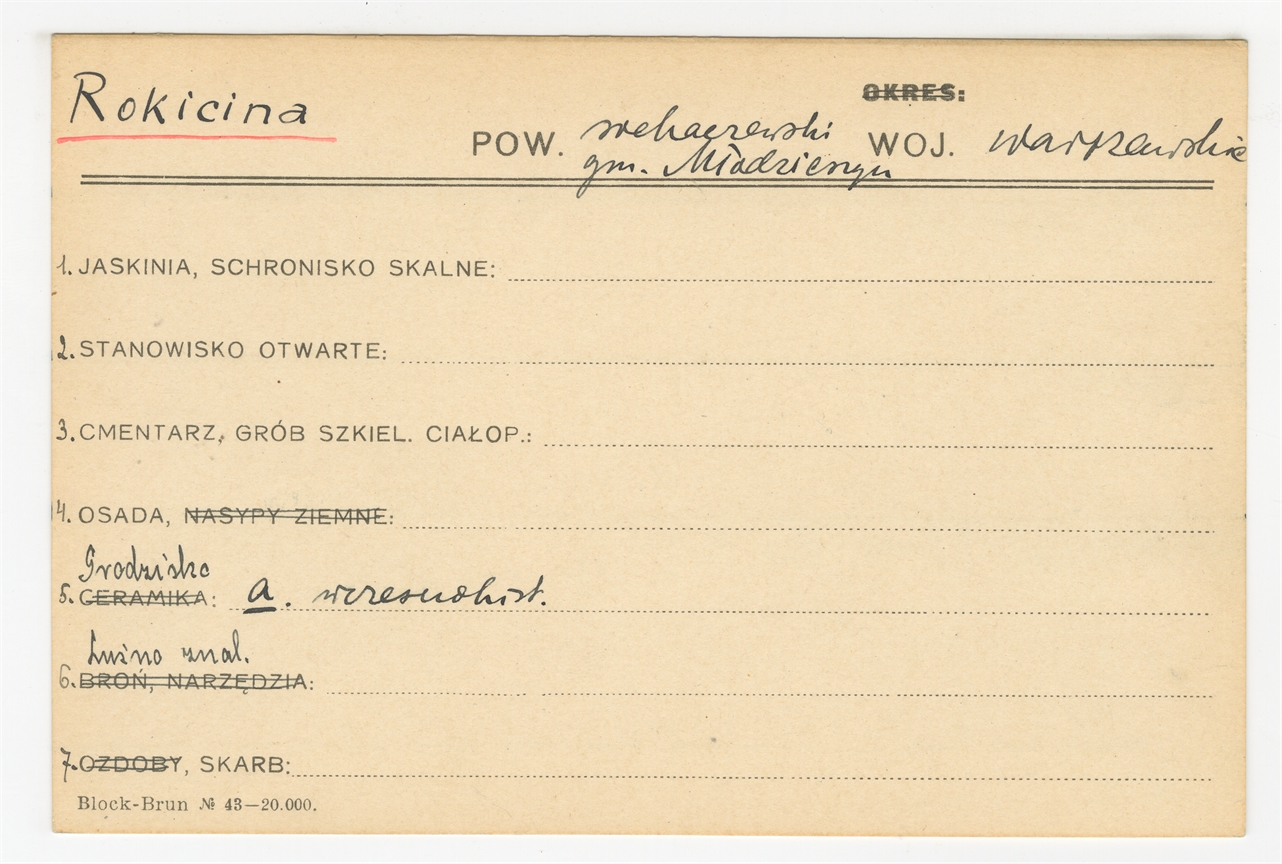 Rokicina
OKRES:
POW. sochaczewski WOJ. warszawskie
gm. Młodzieszyn
1. JASKINIA, SCHRONISKO SKALNE:
2. STANOWISKO OTWARTE:
3. CMENTARZ, GRÓB SZKIEL. CIAŁOP.:
4. OSADA, NASYPY ZIEMNE:
Grodzisko
5. CERAMIKA: a. wczesnohist.
Luźno znal.
6. BROŃ, NARZĘDZIA:
7. OZDOBY, SKARB:
Block-Brun № 43—20.000.